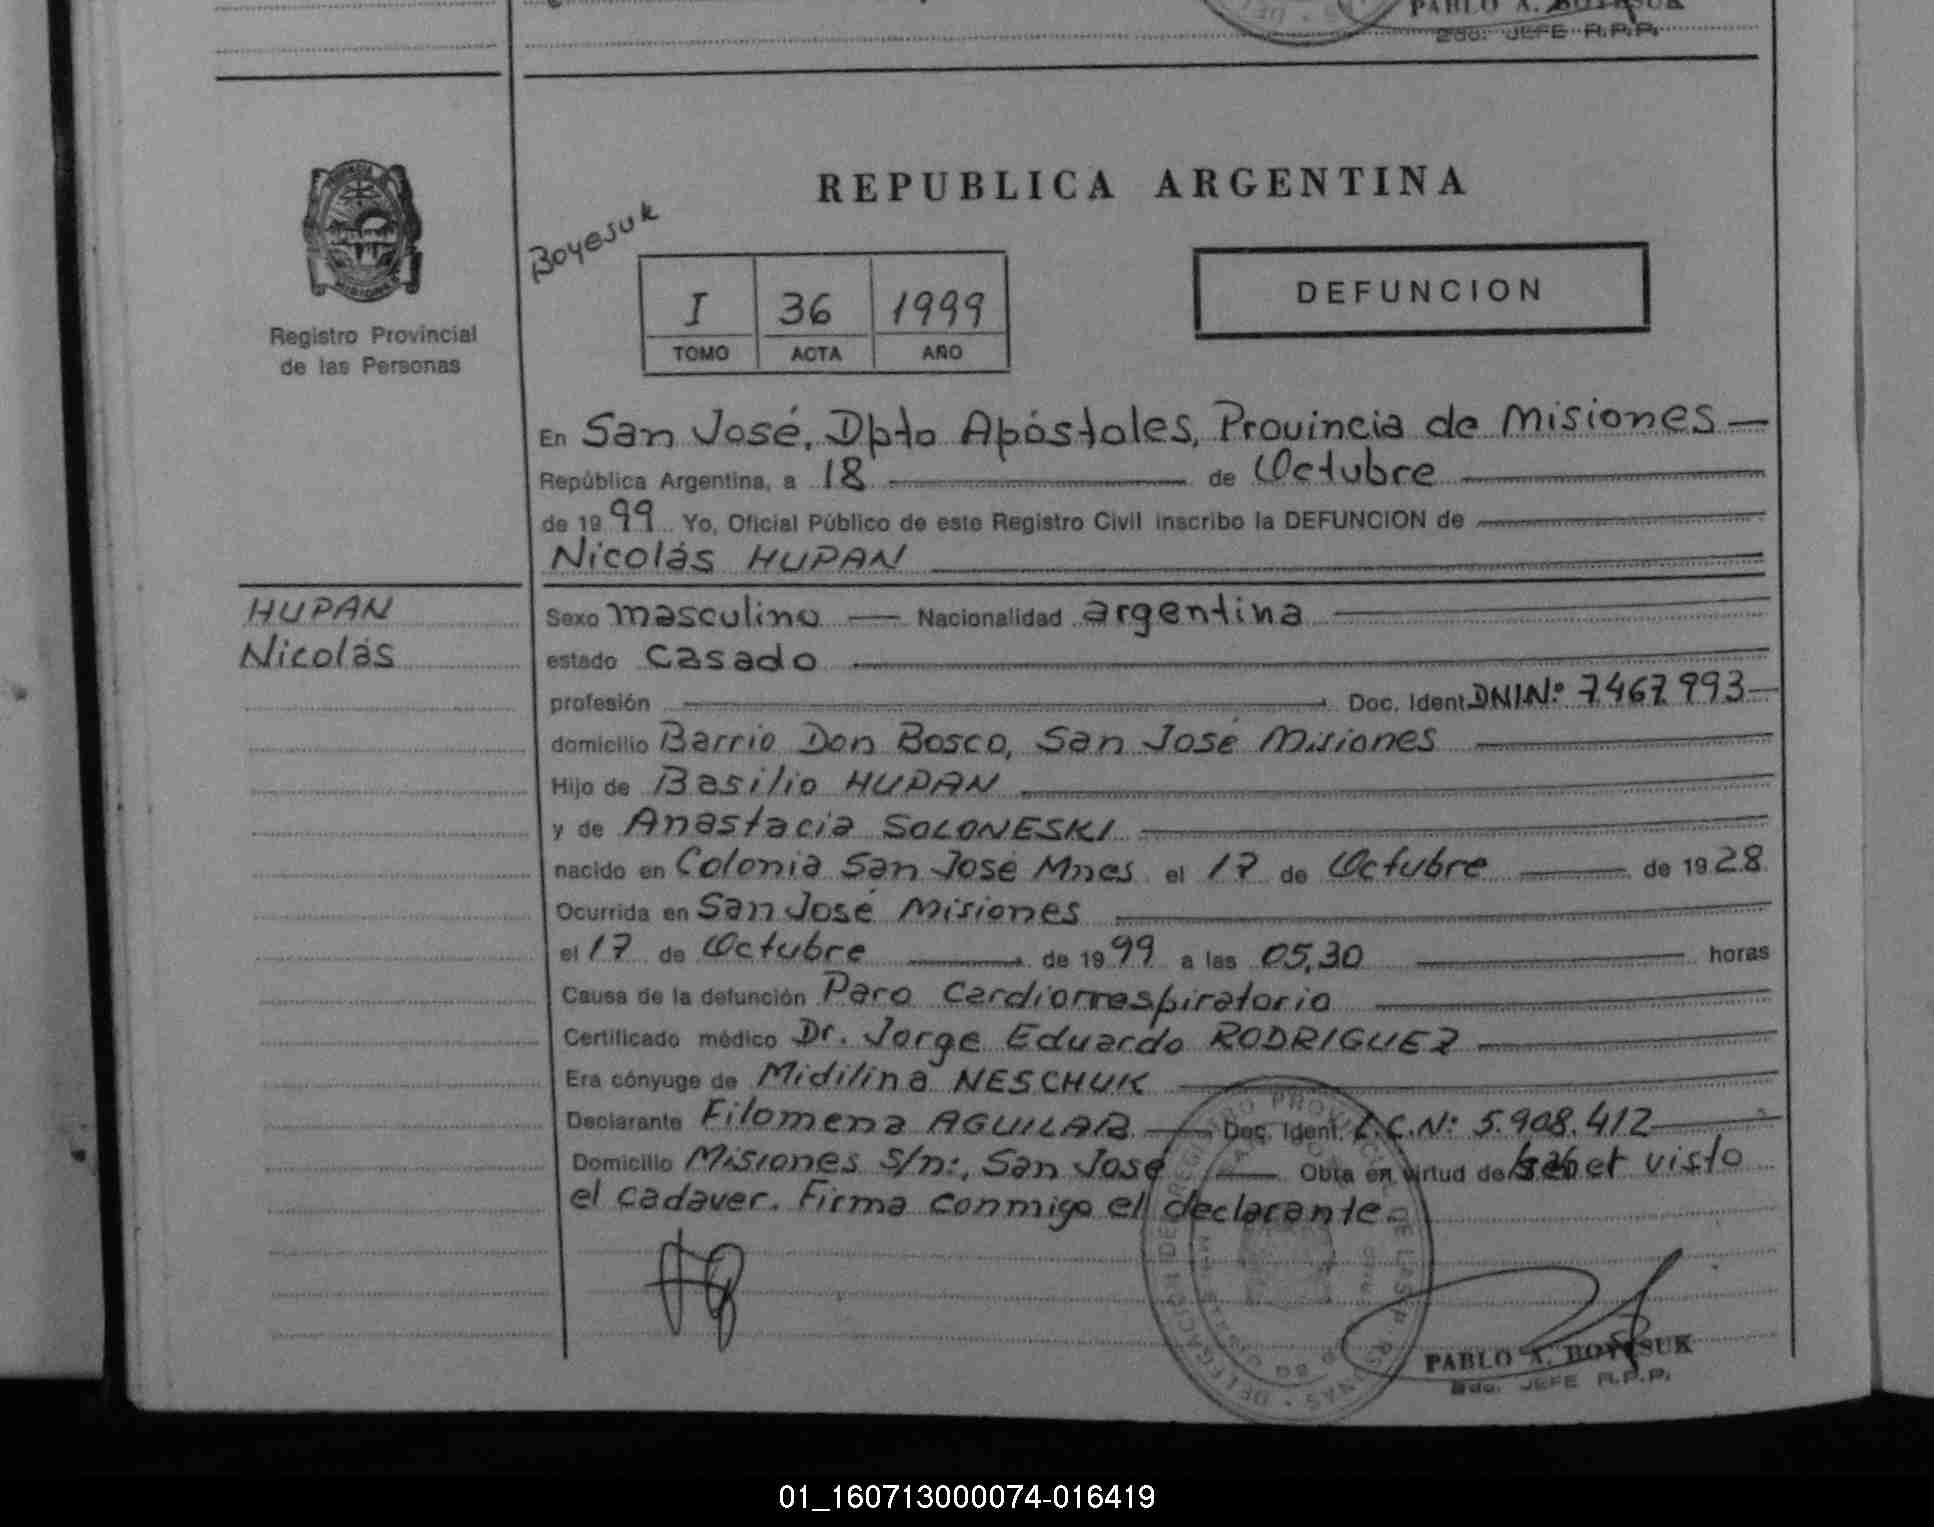 PABLO A. BOYESUK
2do. JEFE R.P.P.
Registro Provincial
de las Personas
REPUBLICA ARGENTINA
Boyesuk
I 36 1999
TOMO ACTA AÑO
DEFUNCION
En San José, Dpto Apóstoles, Provincia de Misiones
República Argentina, a 18 de Octubre
de 1999 Yo, Oficial Público de este Registro Civil inscribo la DEFUNCION de
Nicolás HUPAN
HUPAN
Nicolás
Sexo masculino Nacionalidad argentina
estado Casado
profesión Doc. Ident. DNI Nº 7.467.993
domicilio Barrio Don Bosco, San José Misiones
Hijo de Basilio HUPAN
y de Anastacia SOLONESKI
nacido en Colonia San José Mnes el 17 de Octubre de 1928
Ocurrida en San José Misiones
el 17 de Octubre de 1999 a las 05,30 horas
Causa de la defunción Paro Cardiorrespiratorio
Certificado médico Dr. Jorge Eduardo RODRIGUEZ
Era cónyuge de Midilina NESCHUK
Declarante Filomena AGUILAR Doc. Ident. L.C.N: 5.908.412
Domicilio Misiones s/n:, San José Obra en virtud de haber visto
el cadaver. Firma conmigo el declarante.
PABLO A. BOYESUK
2do. JEFE R.P.P.
01_160713000074-016419